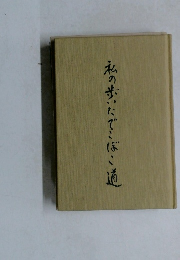 私の歩いたでこぼこ道